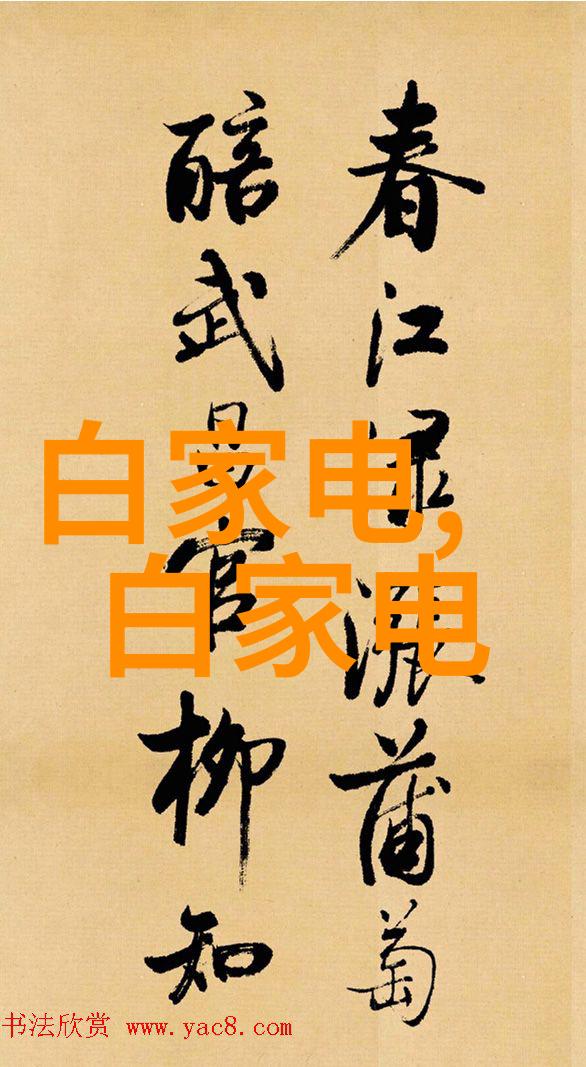 春江渌涨蒲萄
醅武昌官柳知
白家电,
白家电
书法欣赏 www.yac8.com